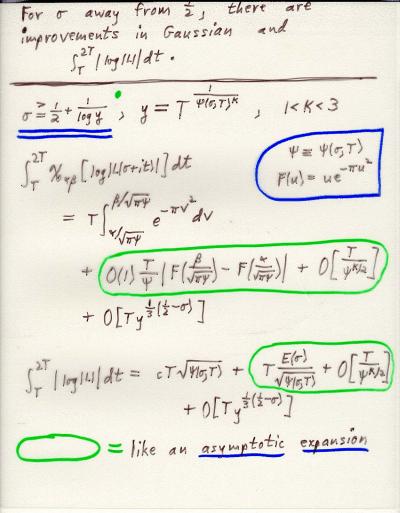 For σ away from ½, there are
improvements in Gaussian and
∫_T^{2T} |log|L||dt.
σ ≥ 1/2 + 1/log y, y = T^{1/Ψ(σ,T)^κ}, 1<κ<3
∫_T^{2T} χ_{αβ}[log|L(σ+it)|]dt
Ψ ≡ Ψ(σ,T)
F(u) = ue^{-πu²}
= T∫_{α/√πΨ}^{β/√πΨ} e^{-πv²}dv
+ O(1) T/Ψ |F(β/√πΨ) - F(α/√πΨ)| + O[T/Ψ^{κ/2}]
+ O[Ty^{⅓(½-σ)}]
∫_T^{2T} |log|L||dt = cT√Ψ(σ,T) + T E(σ)/√Ψ(σ,T) + O[T/Ψ^{κ/2}]
+ O[Ty^{⅓(½-σ)}]
= like an asymptotic expansion